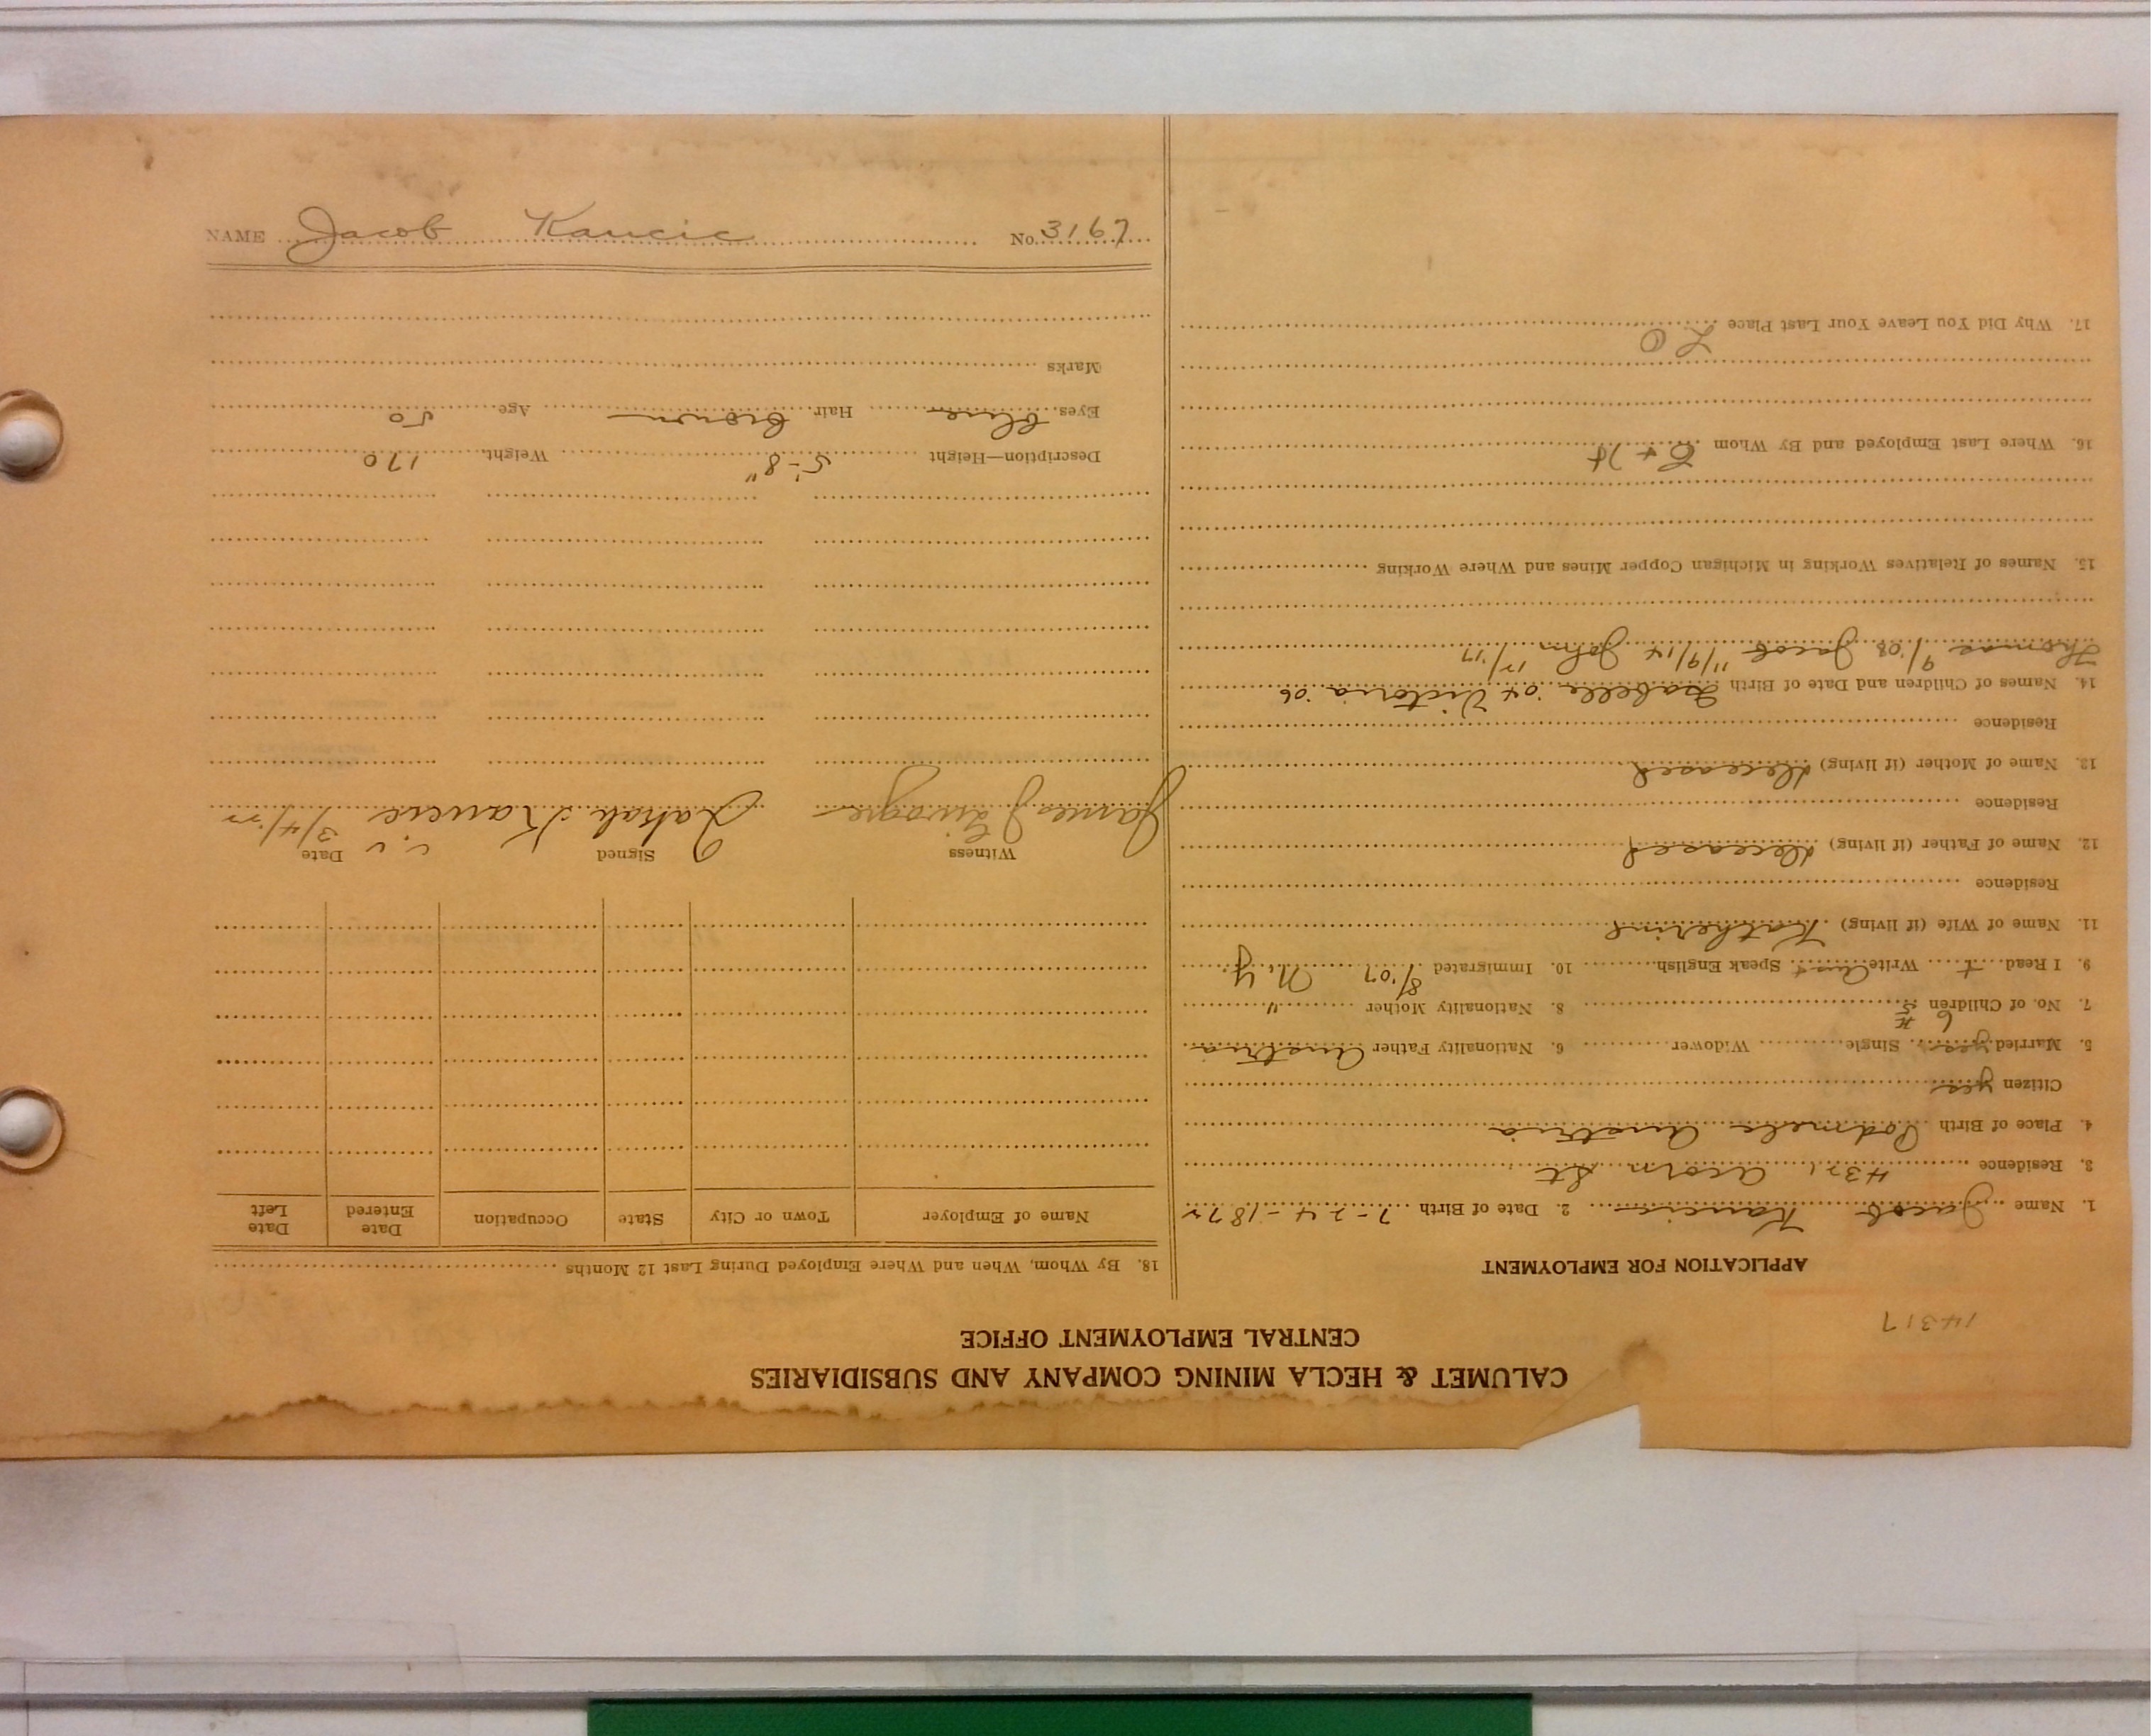 CALUMET & HECLA MINING COMPANY AND SUBSIDIARIES
CENTRAL EMPLOYMENT OFFICE
14317
APPLICATION FOR EMPLOYMENT
1. Name Jacob Kaucic 2. Date of Birth 7-24-1872
3. Residence 4321 Acorn St
4. Place of Birth Podmele Austria
Citizen yes
5. Married yes Single Widower 6. Nationality Father Austria
7. No. of Children 6 8. Nationality Mother "
9. I Read + Write Aust Speak English 10. Immigrated 8/'07 N.Y.
11. Name of Wife (if living) Katherine
Residence
12. Name of Father (if living) deceased
Residence
13. Name of Mother (if living) deceased
Residence
14. Names of Children and Date of Birth Isabelle '04 Victoria '06
Thomas 9/'08 Jacob 11/9/14 John 12/'17
15. Names of Relatives Working in Michigan Copper Mines and Where Working
16. Where Last Employed and By Whom C + H
17. Why Did You Leave Your Last Place L O
18. By Whom, When and Where Employed During Last 12 Months
Name of Employer Town or City State Occupation Date Entered Date Left
Witness Signed Date
James J Kaucic 3/4/'22
Description—Height 5'-8" Weight 170
Eyes blue Hair brown Age 50
Marks
NAME Jacob Kaucic No. 3167